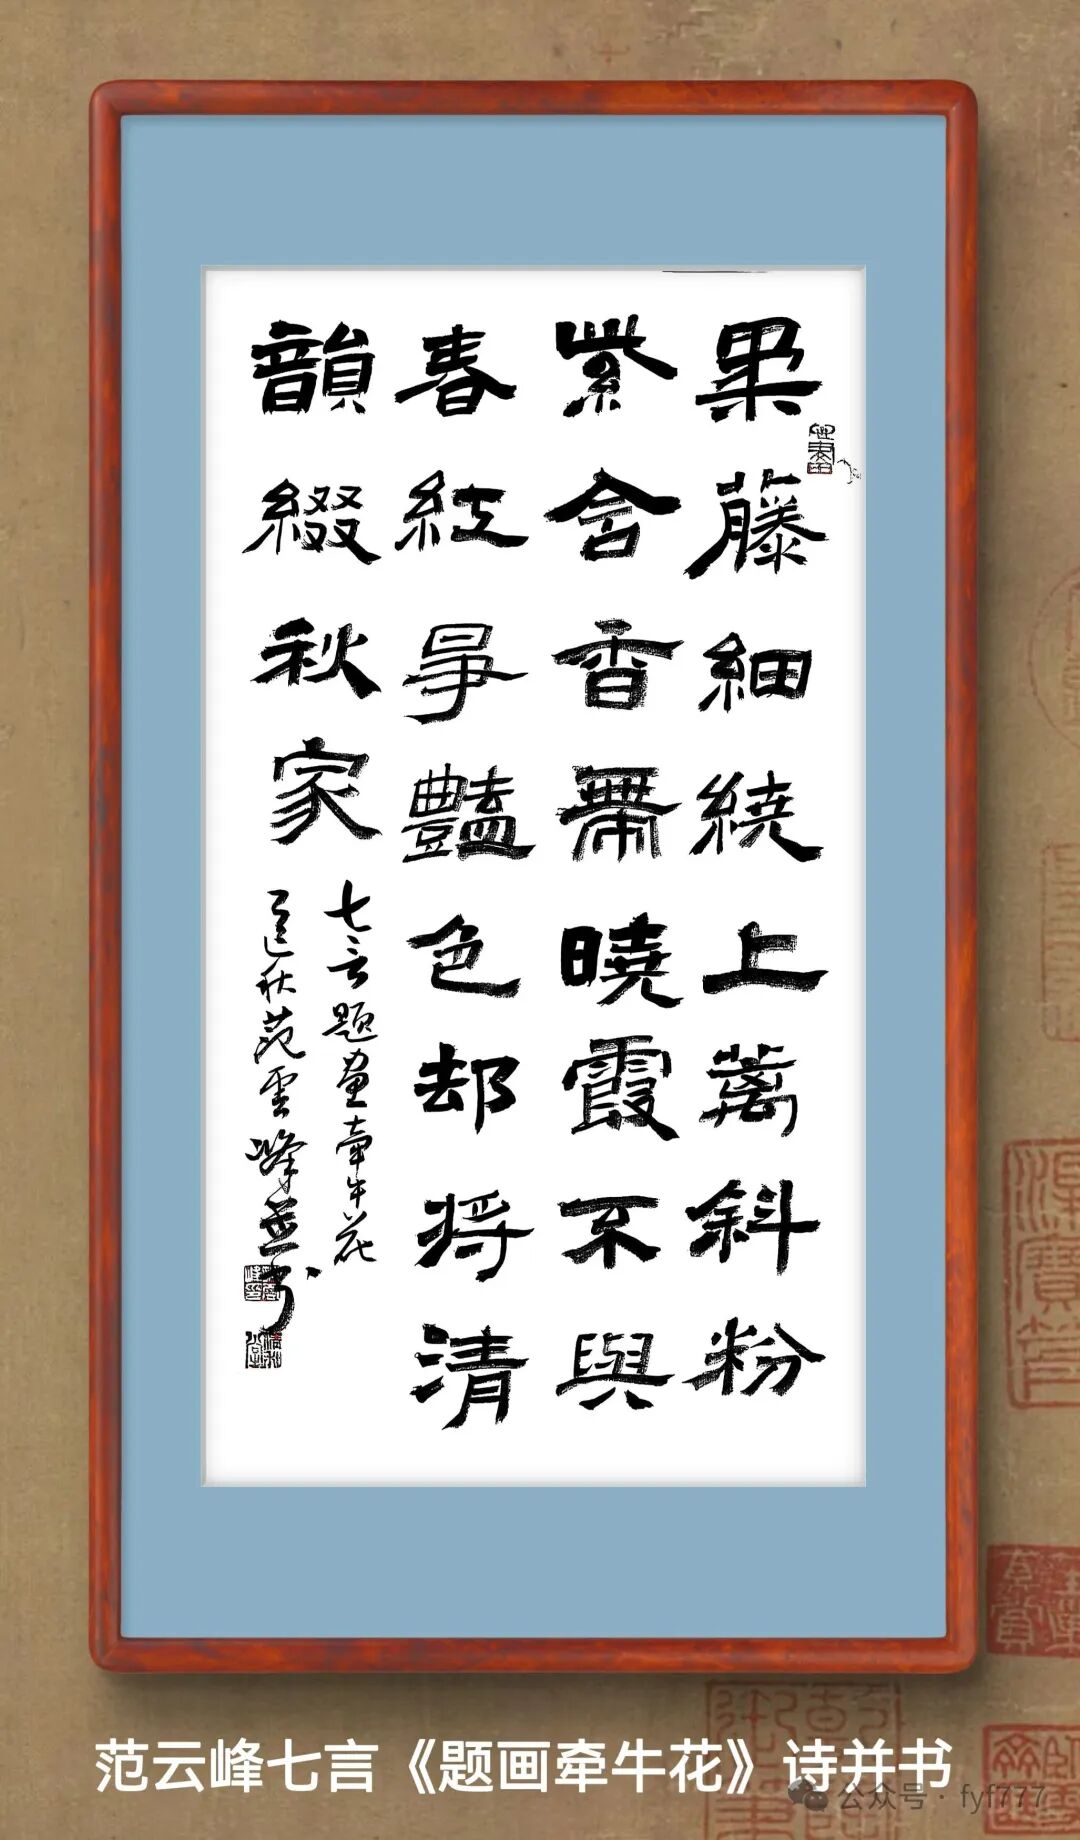 柔藤細繞上篱斜粉
紫含香帶曉霞不與
春紅爭豔色却將清
韻綴秋家
七言题画牽牛花
乙巳秋范雲峰并书
范云峰七言《题画牵牛花》诗并书
公众号 · fyf777